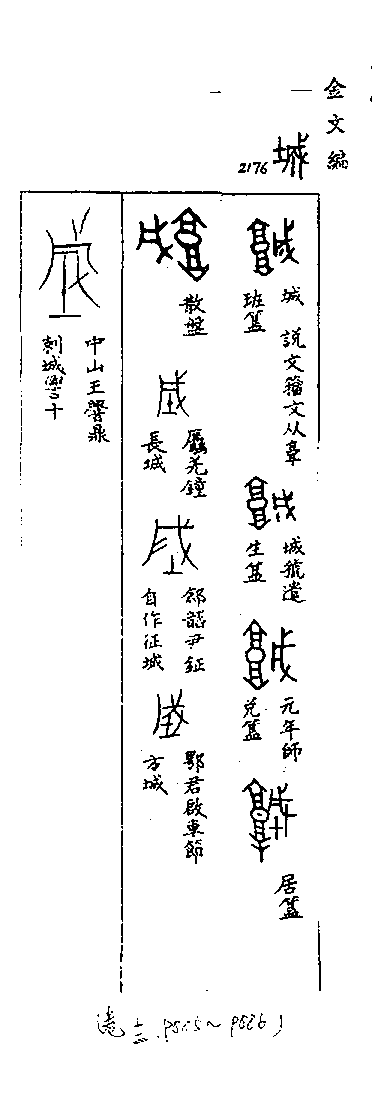 金文編
城
2176
城 說文籀文从𩫏
班簋
城虢遣
生簋
元年師
兌簋
居簋
散盤
驫羌鐘
長城
郘𧊒尹鉦
自作征城
鄂君啟車節
方城
中山王𰯼鼎
剌城嚳十